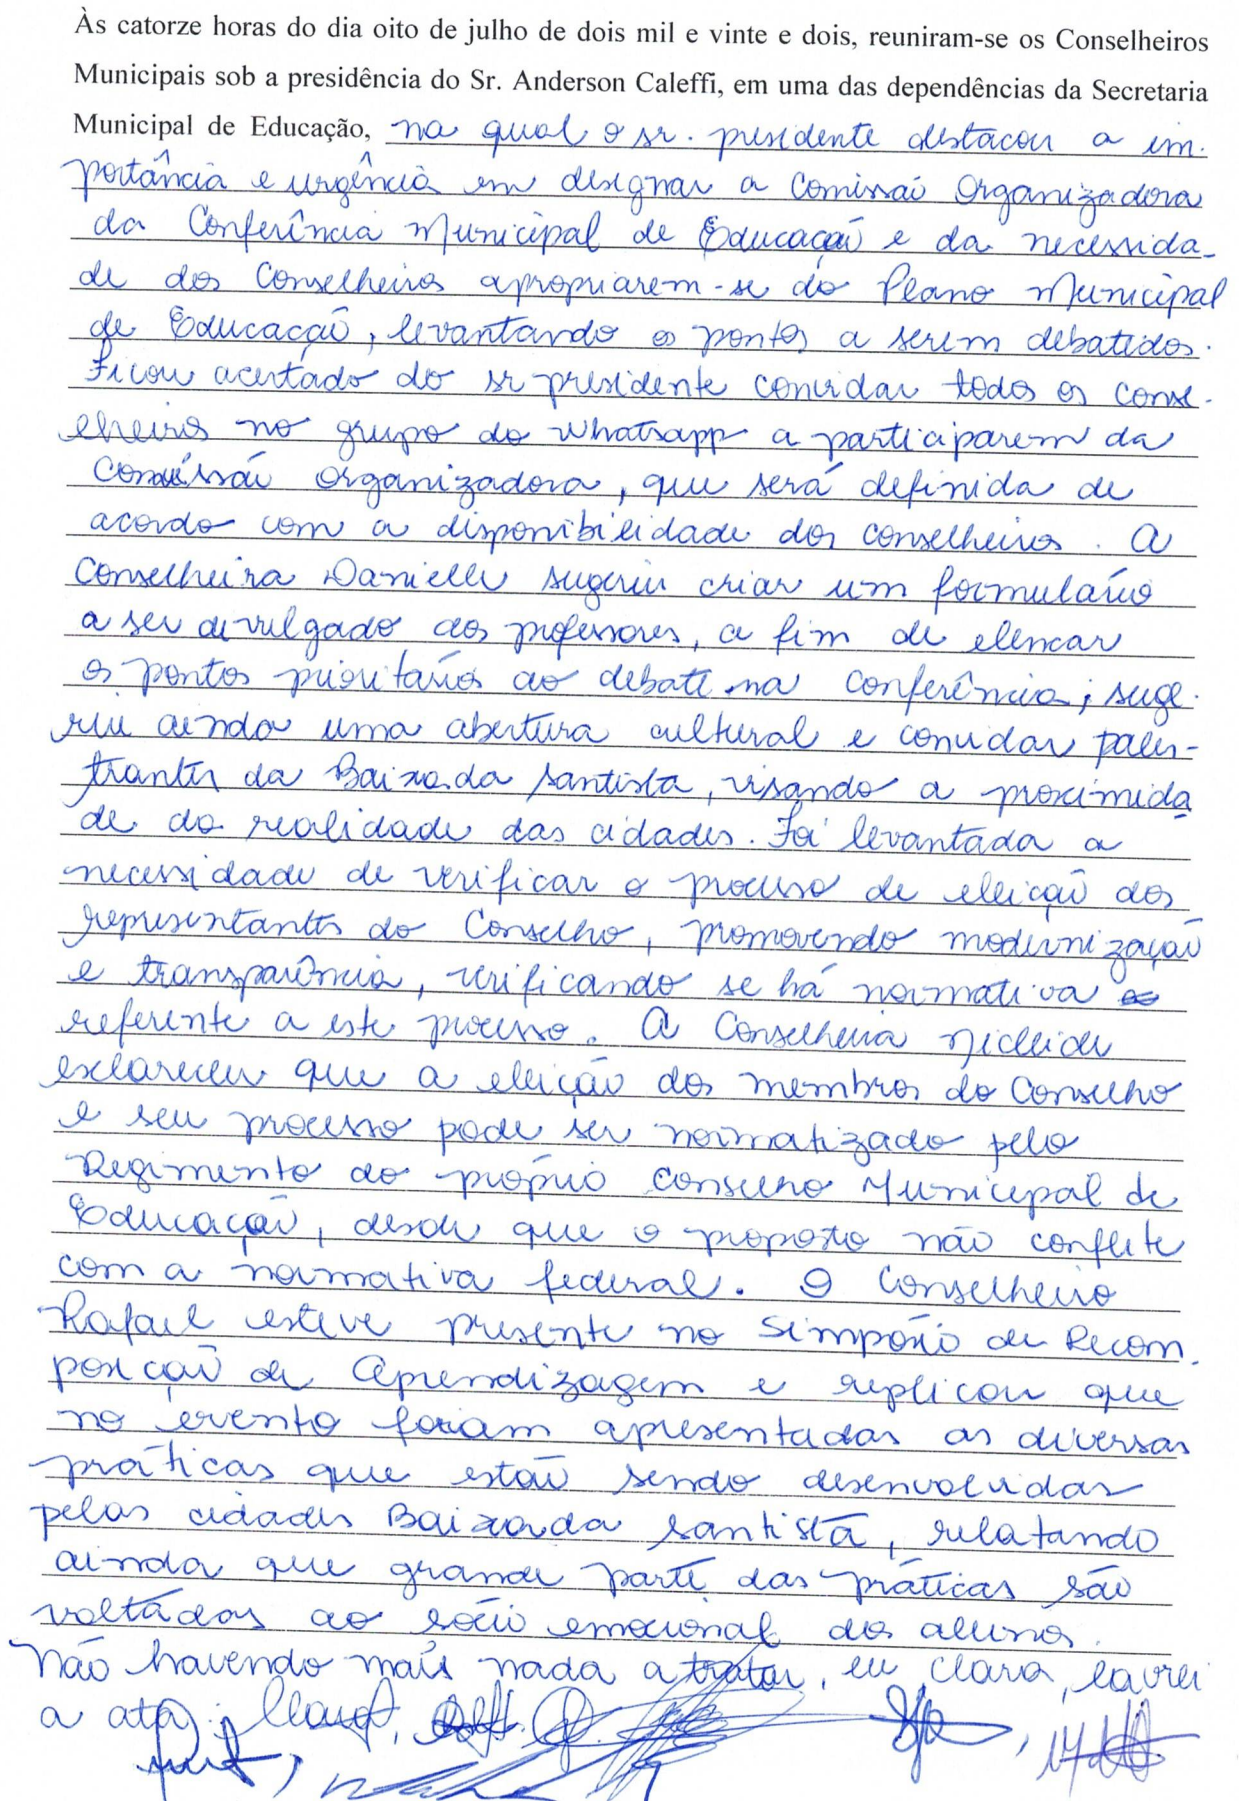 Às catorze horas do dia oito de julho de dois mil e vinte e dois, reuniram-se os Conselheiros
Municipais sob a presidência do Sr. Anderson Caleffi, em uma das dependências da Secretaria
Municipal de Educação, na qual o sr. presidente destacou a im-
portância e urgência em designar a Comissão Organizadora
da Conferência Municipal de Educação e da necessida-
de dos Conselheiros apropriarem-se do Plano Municipal
de Educação, levantando os pontos a serem debatidos.
Ficou acertado do sr presidente convidar todos os conse-
lheiros no grupo do Whatsapp a participarem da
Comissão Organizadora, que será definida de
acordo com a disponibilidade dos conselheiros. A
Conselheira Danielle sugeriu criar um formulário
a ser divulgado aos professores, a fim de elencar
os pontos prioritários ao debate na conferência; suge-
riu ainda uma abertura cultural e convidar pales-
trantes da Baixada Santista, visando a proximida
de da realidade das cidades. Foi levantada a
necessidade de verificar o processo de eleição dos
representantes do Conselho, promovendo modernização
e transparência, verificando se há normativa
referente a este processo. A Conselheira Nicleide
esclareceu que a eleição dos membros do Conselho
e seu processo pode ser normatizado pelo
Regimento do próprio Conselho Municipal de
Educação, desde que o proposto não conflite
com a normativa federal. O Conselheiro
Rafael esteve presente no Simpósio de Recom-
posição de Aprendizagem e replicou que
no evento foram apresentadas as diversas
práticas que estão sendo desenvolvidas
pelas cidades Baixada Santista, relatando
ainda que grande parte das práticas são
voltadas ao sócio emocional dos alunos.
Não havendo mais nada a tratar, eu Clara, lavrei
a ata.